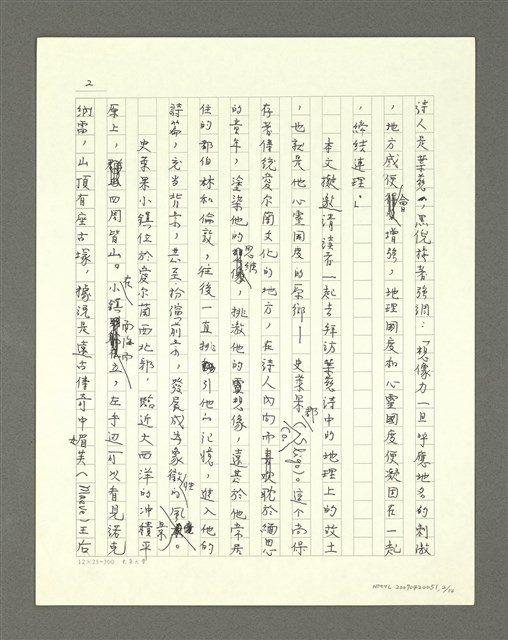 2
詩人是葉慈，黑倪接著強調：「想像力一旦呼應地名的刺激
，地方感便會增強，地理國度和心靈國度便凝固在一起
，締結連理。」
本文邀請讀者一起去拜訪葉慈詩中的地理上的故土
，也就是他心靈國度的原鄉──史萊果郡（Co. Sligo）。這个尚保
存著傳統愛爾蘭文化的地方，在詩人內向而喜歡耽於緬思
的青年，塗染他的思維，挑激他的靈想像，遠甚於他常居
住的都伯林和倫敦，往後一直挑引他的記憶，進入他的
詩篇，充當背景，甚至扮當前景，發展成為象徵性的風景。
史萊果小鎮位於愛爾蘭西北部，臨近大西洋的沖積平
原上，四周皆山。小鎮在左，西海而立，左手邊可以看見諾克
納雷，山頂有座古塚，據說是遠古傳奇中媚芙（Maeve）王后
12×25=300 東華大學
NMTL 20090420051, 2/14